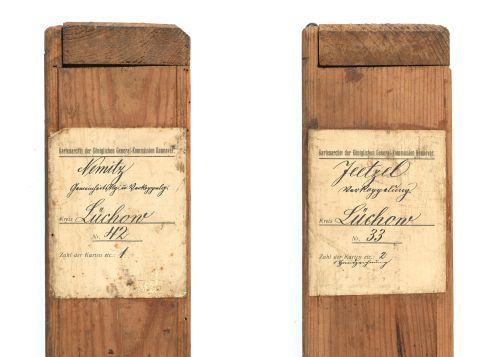 Kartenarchiv der Königlichen General-Kommission Hannover.
Nemitz
Gemeinheitsthlg. u. Verkoppelg.
Kreis Lüchow
Nr. 42
Zahl der Karten etc.: 1
Kartenarchiv der Königlichen General-Kommission Hannover.
Jeetzel
Verkoppelung
Kreis Lüchow
Nr. 33
Zahl der Karten etc.: 2